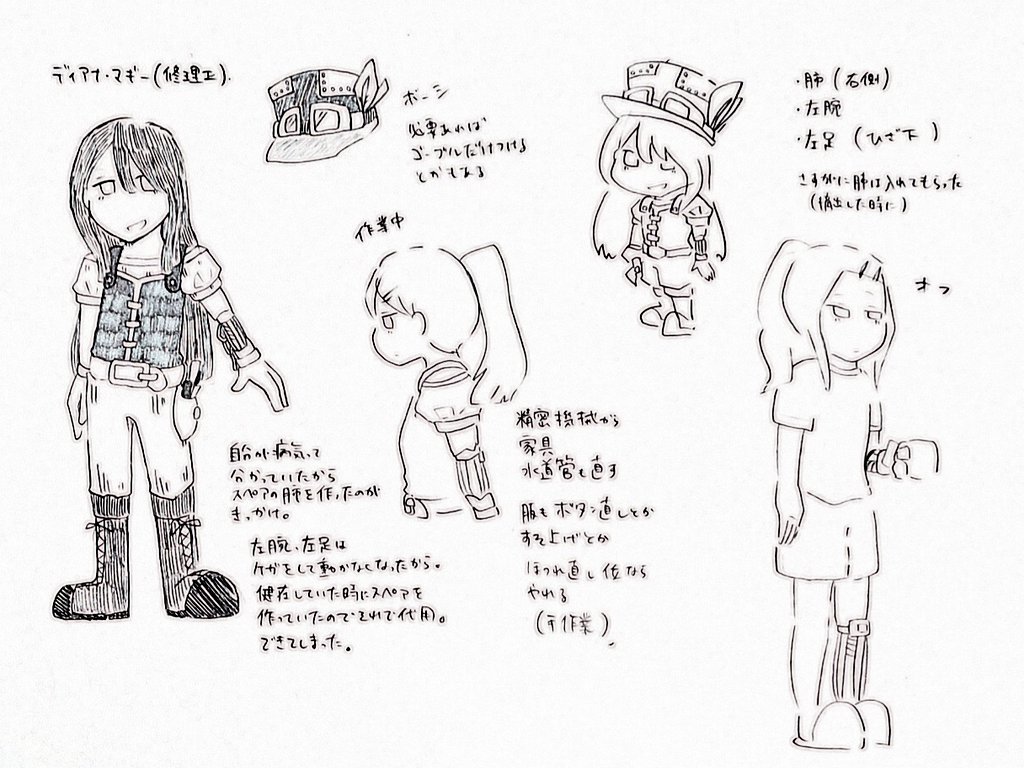 ディアナ・マギー(修理工).
ボーシ
必要あれば
ゴーグルだけつける
とかもある
作業中
・肺(右側)
・左腕
・左足(ひざ下)
さすがに肺は入れてもらった
(摘出した時に)
オフ
自分が病気って
分かっていたから
スペアの肺を作ったのが
きっかけ。
左腕、左足は
ケガをして動かなくなったから。
健在していた時にスペアを
作っていたのでそれで代用。
できてしまった。
精密機械から
家具
水道管も直す
服もボタン直しとか
すそ上げとか
ほつれ直し位なら
やれる
(手作業)